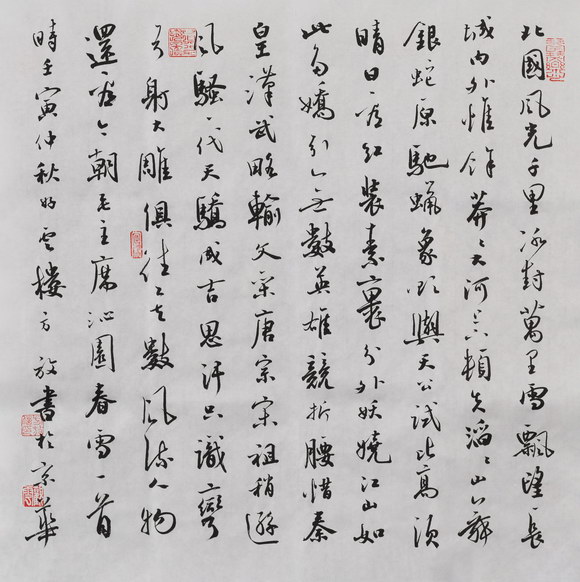 北國風光千里冰封萬里雪飄望長
城内外惟餘莽莽大河上下頓失滔滔山舞
銀蛇原馳蠟象欲與天公試比高須
晴日看紅裝素裹分外妖嬈江山如
此多嬌引無數英雄競折腰惜秦
皇漢武略輸文采唐宗宋祖稍遜
風騷一代天驕成吉思汗只識彎
弓射大雕俱往矣數風流人物
還看今朝毛主席沁園春雪一首
時壬寅仲秋雲樓方放書於京華